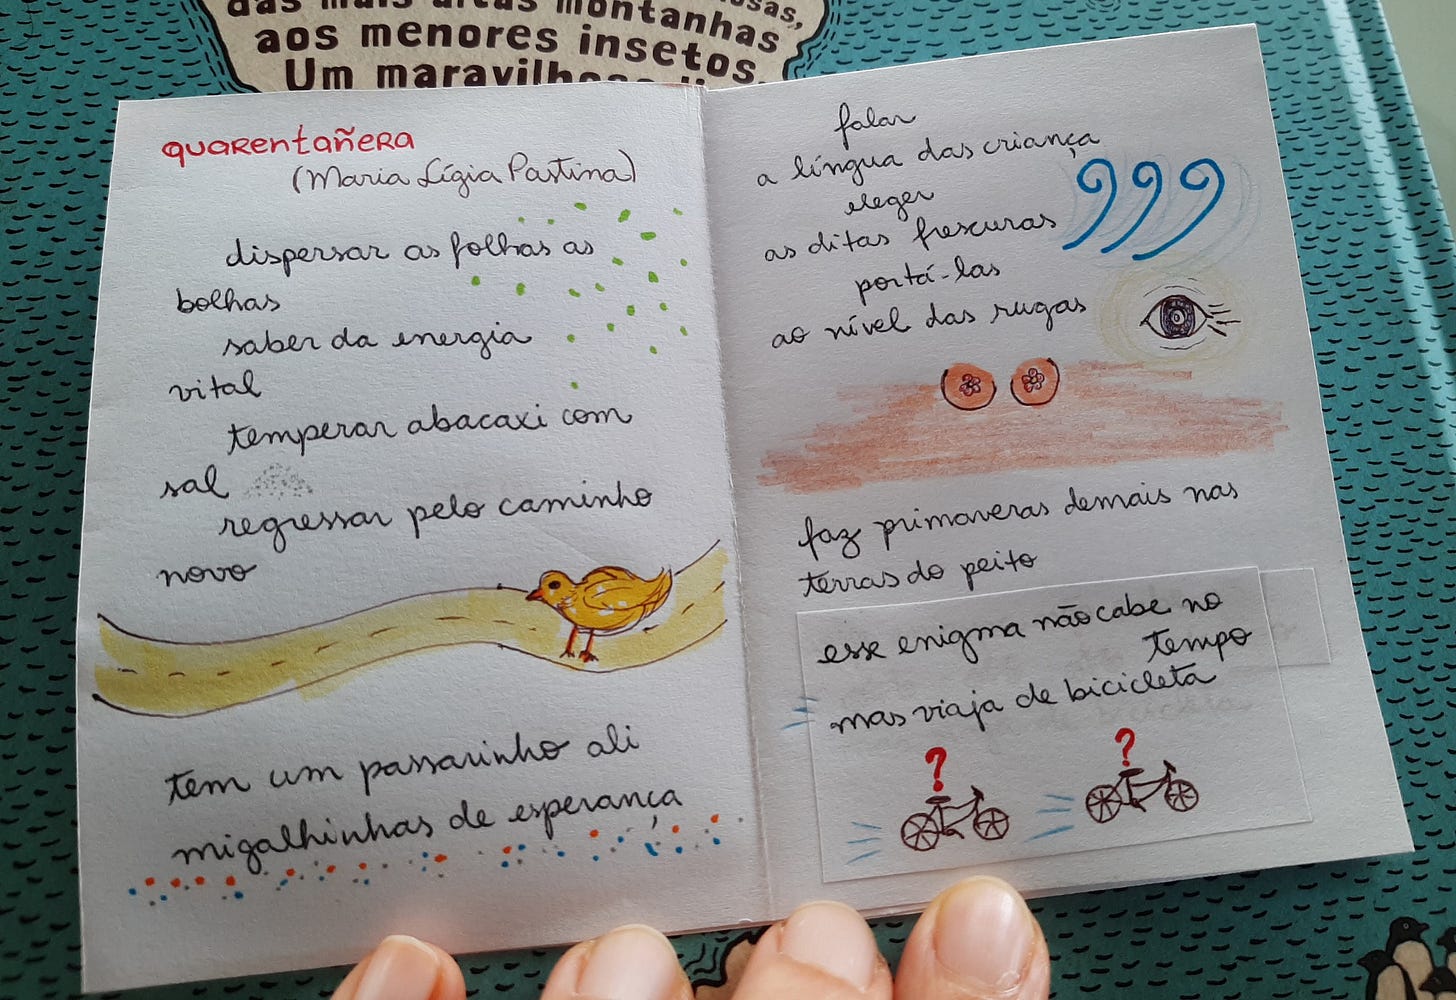 das mais altas montanhas
aos menores insetos.
Um
quarentañera
(Maria Lígia Pastina)
dispersar as folhas as
bolhas
saber da energia
vital
temperar abacaxi com
sal
regressar pelo caminho
novo
tem um passarinho ali
migalhinhas de esperança
falar
a língua das criança
eleger
as ditas frescuras
portá-las
ao nível das rugas
faz primaveras demais nas
terras do peito
esse enigma não cabe no
tempo
mas viaja de bicicleta
? ?